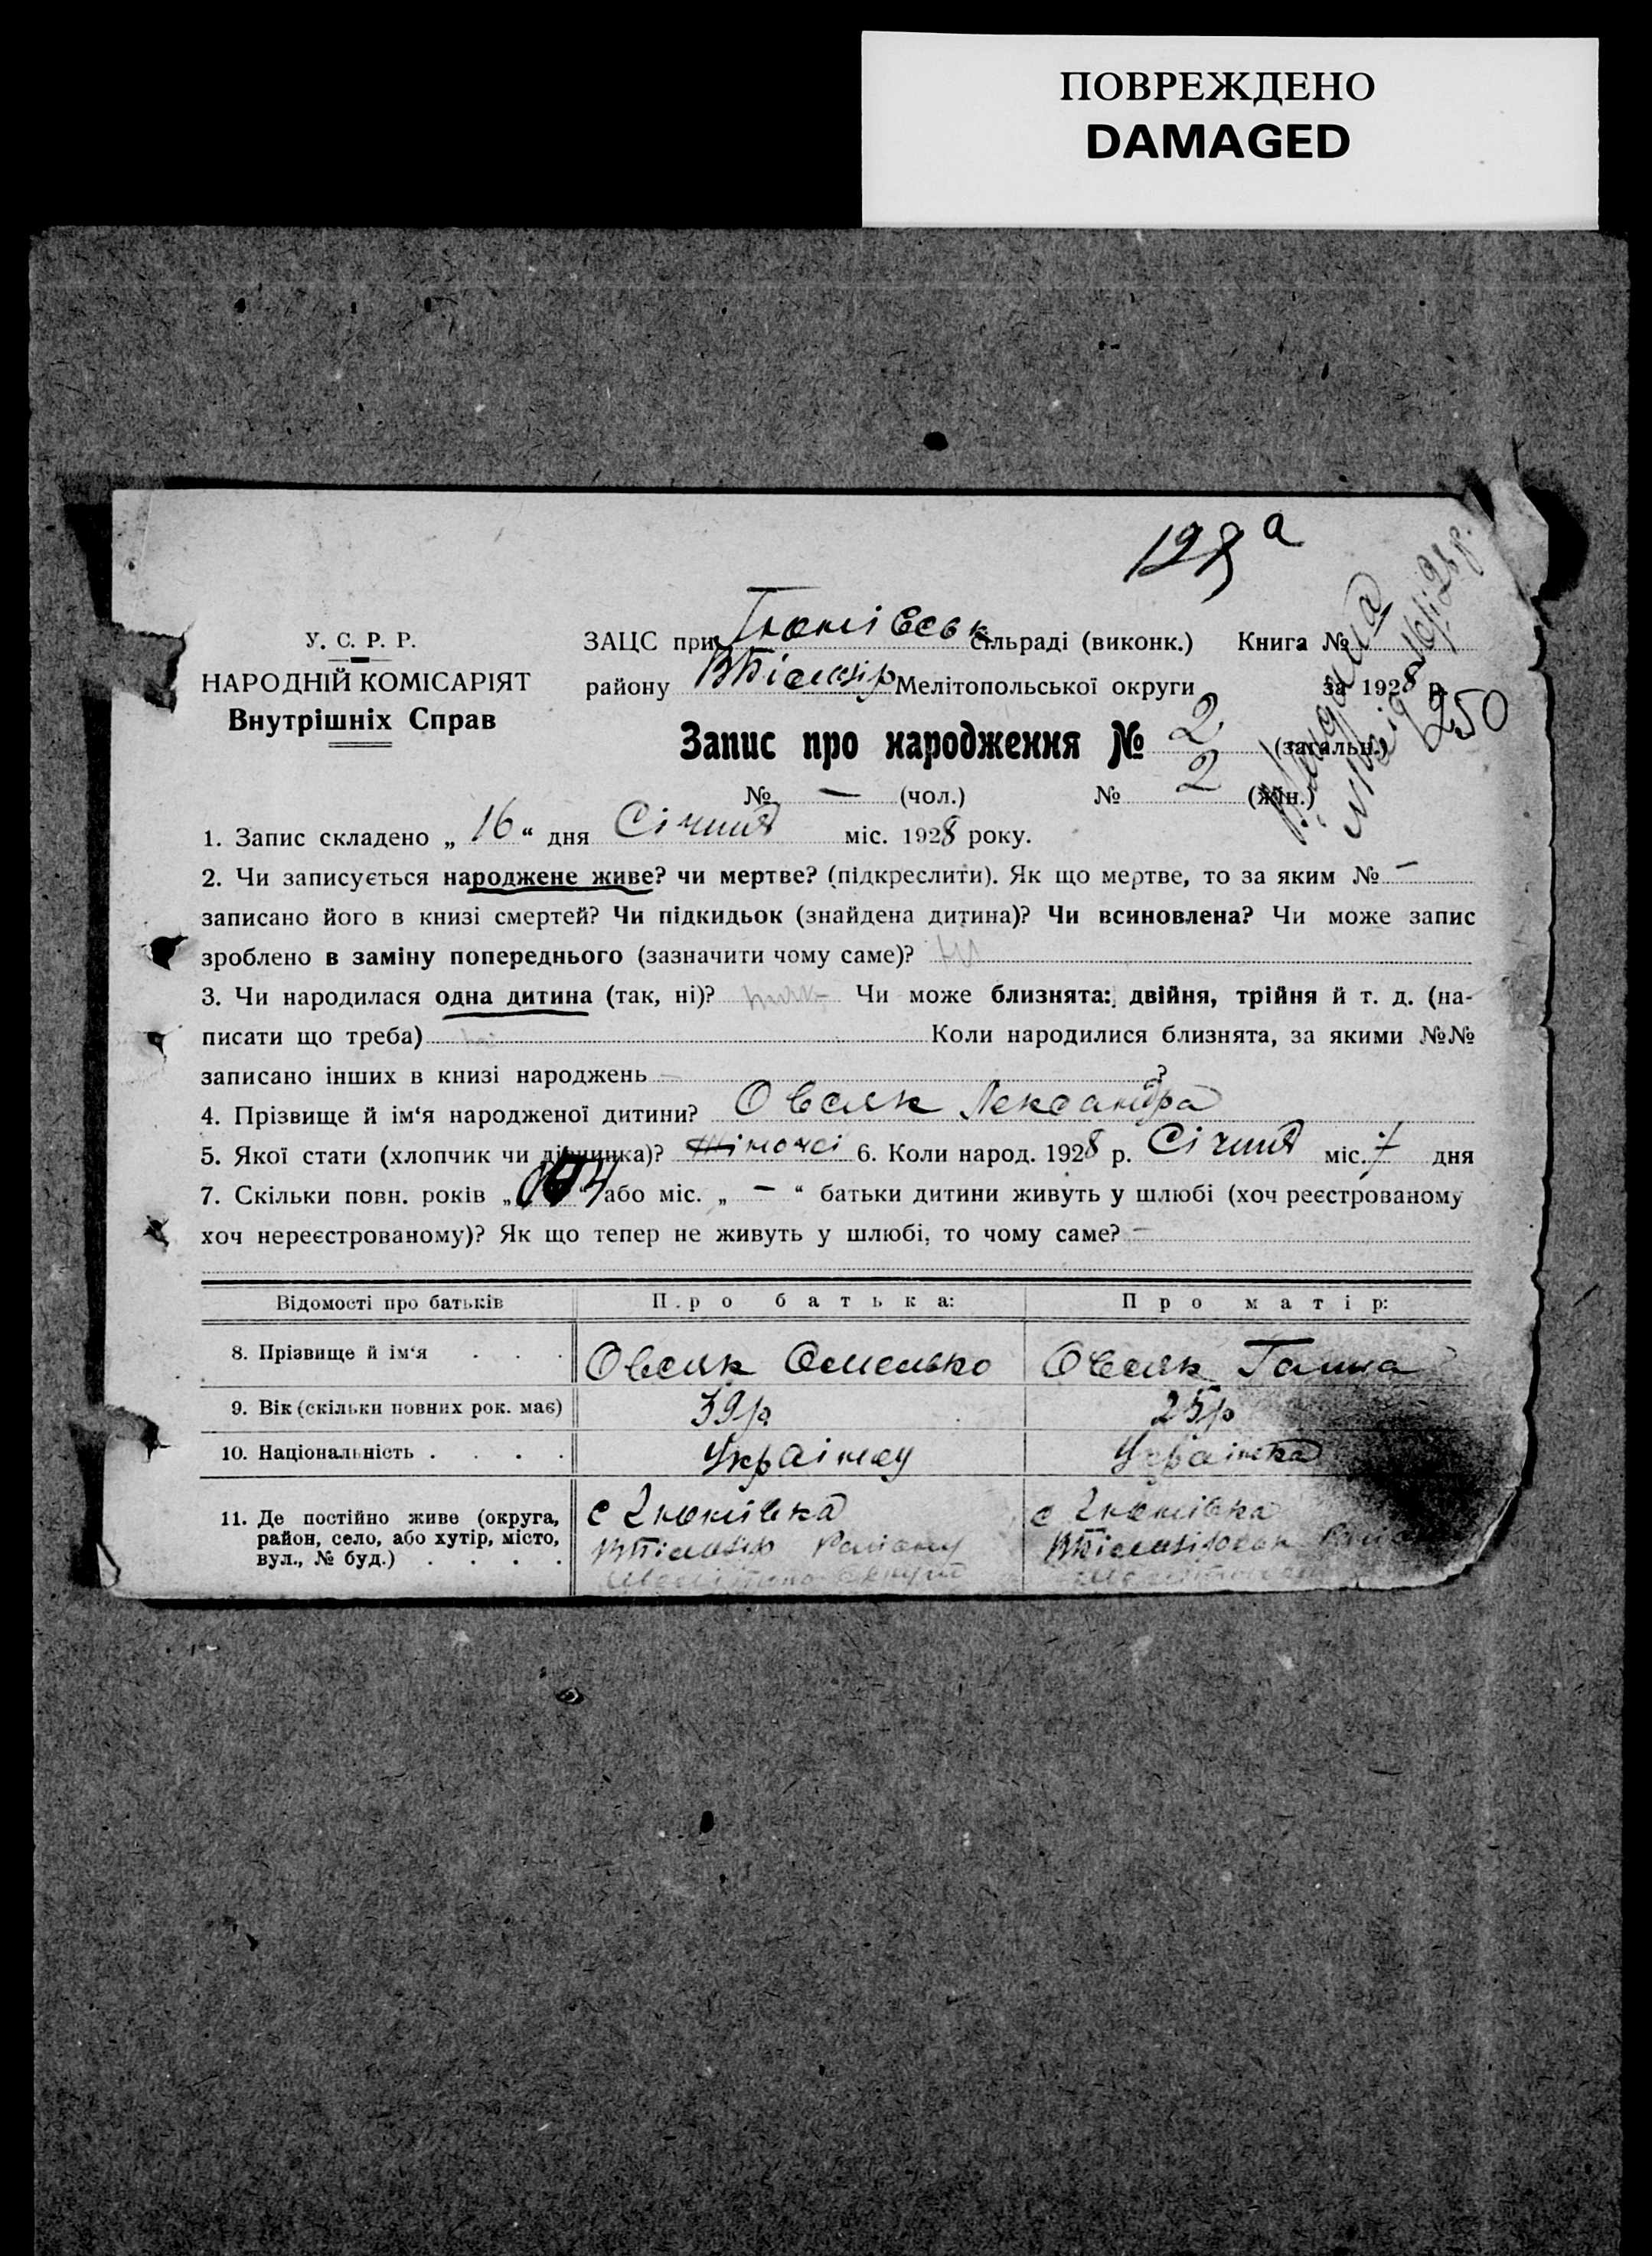 ПОВРЕЖДЕНО
DAMAGED
У. С. Р. Р.
НАРОДНІЙ КОМІСАРІЯТ
Внутрішніх Справ
ЗАЦС при сільраді (виконк.) Книга №
району Мелітопольської округи за 1928 р.
250
Запис про народження № 2 (загальн.)
№ — (чол.) № 2 (жін.)
1. Запис складено „ 16 “ дня Січня міс. 1928 року.
2. Чи записується народжене живе? чи мертве? (підкреслити). Як що мертве, то за яким № —
записано його в книзі смертей? Чи підкидьок (знайдена дитина)? Чи всиновлена? Чи може запис
зроблено в заміну попереднього (зазначити чому саме)?
3. Чи народилася одна дитина (так, ні)? Чи може близнята: двійня, трійня й т. д. (на-
писати що треба) Коли народилися близнята, за якими №№
записано інших в книзі народжень ?
4. Прізвище й ім‘я народженої дитини? Овсяк Лександра
5. Якої стати (хлопчик чи дівчинка)? Жіночої 6. Коли народ. 1928 р. Січня міс. 7 дня
7. Скільки повн. років „ “ або міс. „ — “ батьки дитини живуть у шлюбі (хоч реєстрованому
хоч нереєстрованому)? Як що тепер не живуть у шлюбі, то чому саме? —
Відомості про батьків Про батька: Про матір:
8. Прізвище й ім‘я . . . Овсяк Омелько Овсяк Ганна
9. Вік (скільки повних рок. має) 39 р 25 р
10. Національність . . . . Українец Українка
11. Де постійно живе (округа,
район, село, або хутір, місто,
вул., № буд.) . . . .